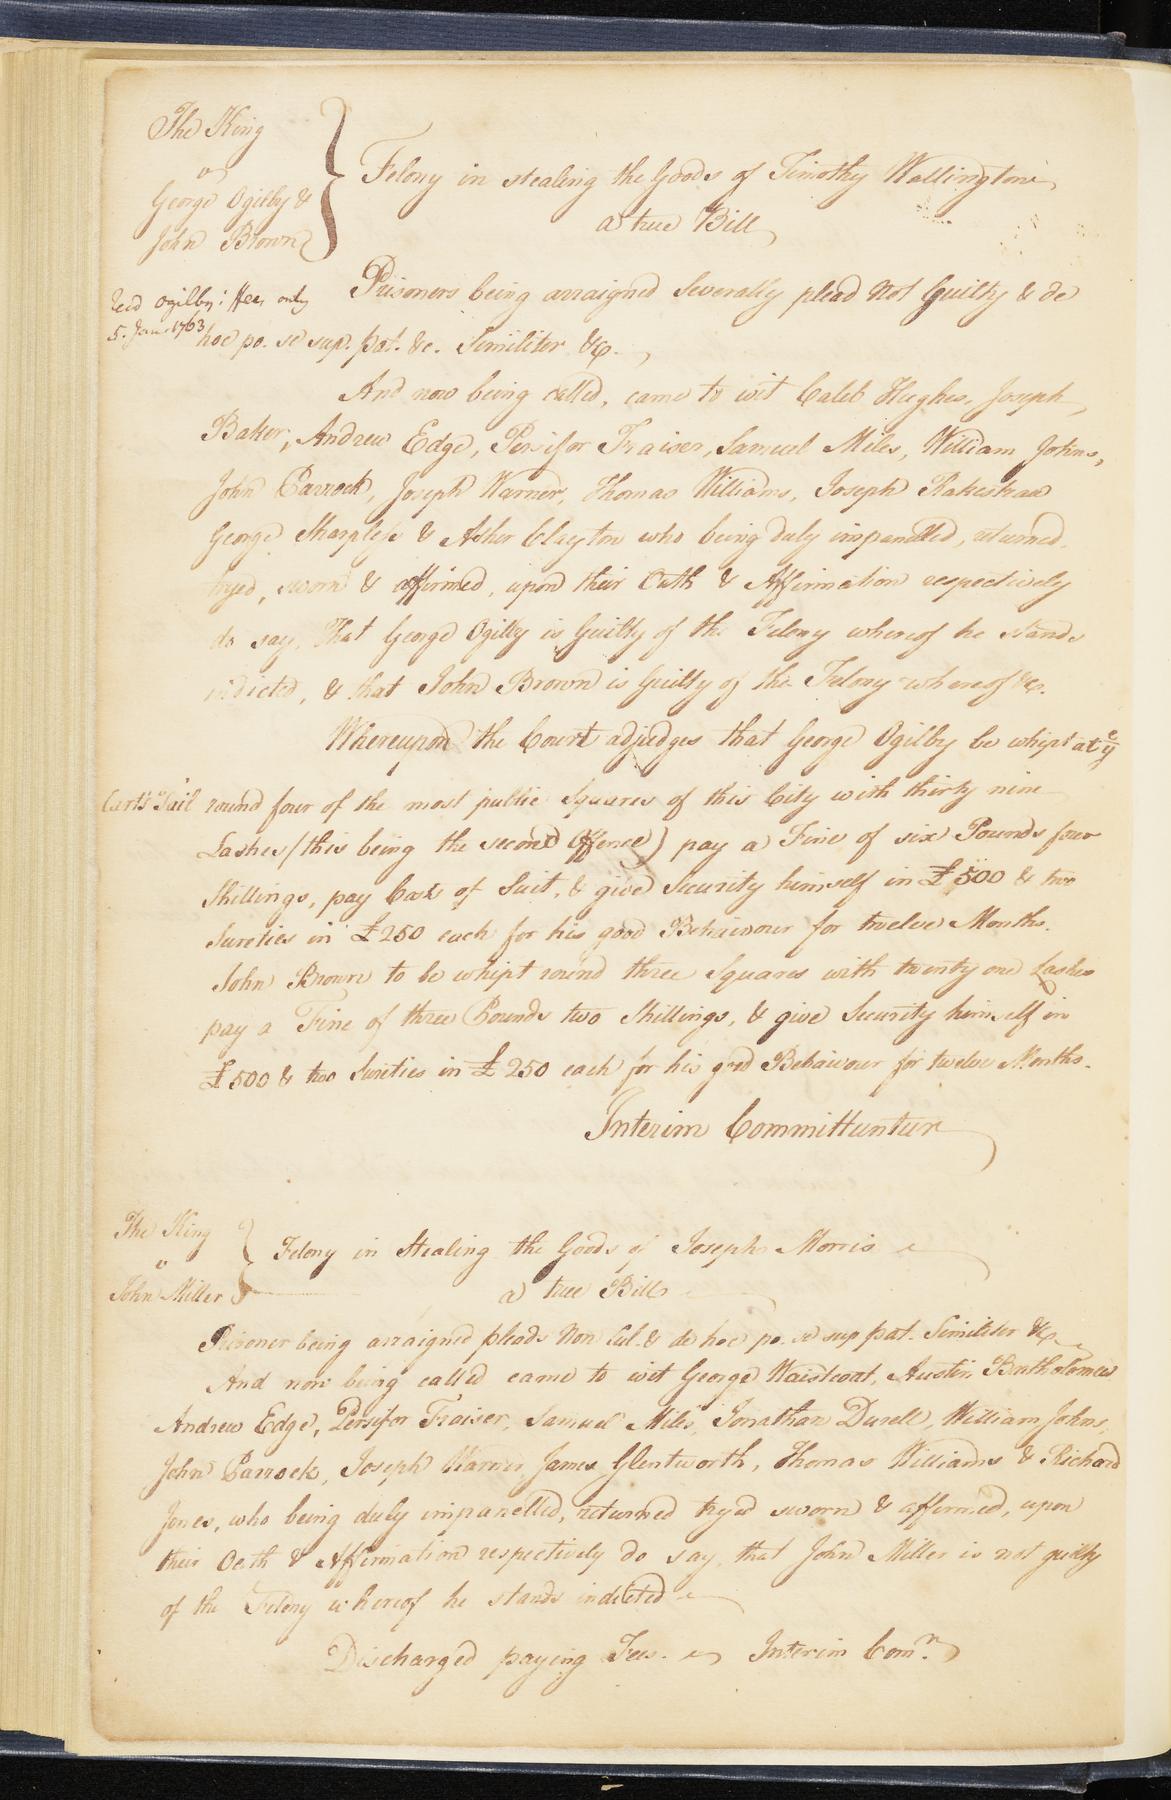 The King
v
George Ogilby &
John Brown
Felony in stealing the Goods of Timothy Wallington
a true Bill
Recd Ogilby: Fees only
5. Jan. 1763
Prisoners being arraigned severally plead Not Guilty & de
hoc po. se sup. pat. &c. Similiter &c.
And now being called, came to wit Caleb Hughes, Joseph
Baker, Andrew Edge, Persifor Fraiser, Samuel Miles, William Johns,
John Parrock, Joseph Warner, Thomas Williams, Joseph Rakestraw
George Sharpless & Asher Clayton who being duly impanelled, returned,
tryed, sworn & affirmed, upon their Oath & Affirmation respectively
do say, That George Ogilby is Guilty of the Felony whereof he stands
indicted, & that John Brown is Guilty of the Felony whereof &c.
Whereupon the Court adjudges that George Ogilby be whipt at ye
Cart's Tail round four of the most public Squares of this City with thirty nine
Lashes (this being the second Offence) pay a Fine of six Pounds four
Shillings, pay Cost of Suit, & give Security himself in £500 & two
Sureties in £250 each for his good Behaviour for twelve Months.
John Brown to be whipt round three Squares with twenty one Lashes
pay a Fine of three Pounds two Shillings, & give Security himself in
£500 & two Sureties in £250 each for his good Behaviour for twelve Months.
Interim Committuntur
The King
v
John Miller
Felony in Stealing the Goods of Joseph Morris
a true Bill
Prisoner being arraigned pleads Non Cul. & de hoc po. se sup pat. Similiter &c.
And now being called came to wit George Waistcoat, Austin Bartholomew
Andrew Edge, Persifor Fraiser, Samuel Miles, Jonathan Durell, William Johns,
John Parrock, Joseph Warner, James Glentworth, Thomas Williams & Richard
Jones, who being duly impanelled, returned tryed sworn & affirmed, upon
their Oath & Affirmation respectively do say, that John Miller is not guilty
of the Felony whereof he stands indicted
Discharged paying Fees. Interim Comr.